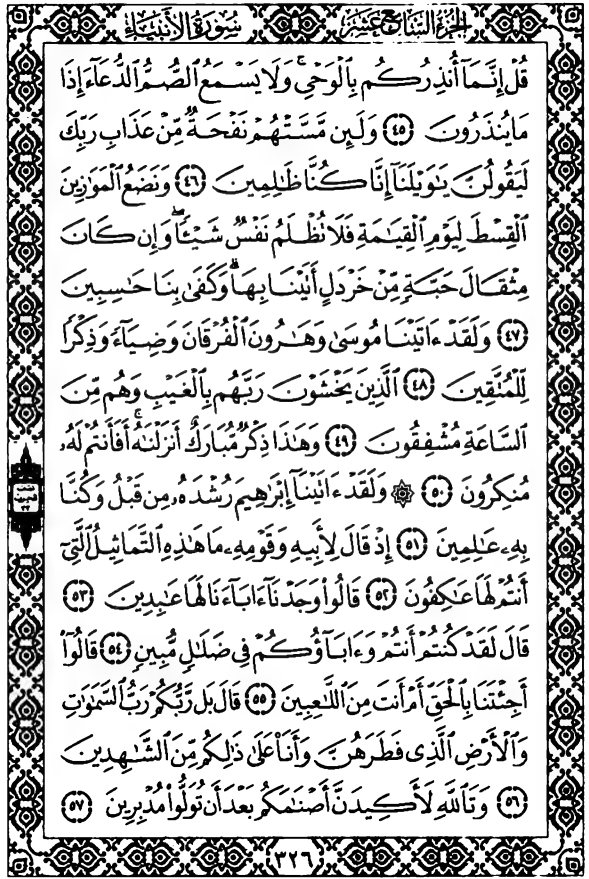 سُورَةُ الأَنْبِيَاءِ الجُزْءُ السَّابِعَ عَشَرَ
قُلْ إِنَّمَآ أُنذِرُكُم بِٱلْوَحْىِ ۚ وَلَا يَسْمَعُ ٱلصُّمُّ ٱلدُّعَآءَ إِذَا
مَا يُنذَرُونَ ٤٥ وَلَئِن مَّسَّتْهُمْ نَفْحَةٌ مِّنْ عَذَابِ رَبِّكَ
لَيَقُولُنَّ يَٰوَيْلَنَآ إِنَّا كُنَّا ظَٰلِمِينَ ٤٦ وَنَضَعُ ٱلْمَوَٰزِينَ
ٱلْقِسْطَ لِيَوْمِ ٱلْقِيَٰمَةِ فَلَا تُظْلَمُ نَفْسٌ شَيْـًٔا ۖ وَإِن كَانَ
مِثْقَالَ حَبَّةٍ مِّنْ خَرْدَلٍ أَتَيْنَا بِهَا ۗ وَكَفَىٰ بِنَا حَٰسِبِينَ
٤٧ وَلَقَدْ ءَاتَيْنَا مُوسَىٰ وَهَٰرُونَ ٱلْفُرْقَانَ وَضِيَآءً وَذِكْرًا
لِّلْمُتَّقِينَ ٤٨ ٱلَّذِينَ يَخْشَوْنَ رَبَّهُم بِٱلْغَيْبِ وَهُم مِّنَ
ٱلسَّاعَةِ مُشْفِقُونَ ٤٩ وَهَٰذَا ذِكْرٌ مُّبَارَكٌ أَنزَلْنَٰهُ ۚ أَفَأَنتُمْ لَهُۥ
مُنكِرُونَ ٥٠ ۞ وَلَقَدْ ءَاتَيْنَآ إِبْرَٰهِيمَ رُشْدَهُۥ مِن قَبْلُ وَكُنَّا
بِهِۦ عَٰلِمِينَ ٥١ إِذْ قَالَ لِأَبِيهِ وَقَوْمِهِۦ مَا هَٰذِهِ ٱلتَّمَاثِيلُ ٱلَّتِىٓ
أَنتُمْ لَهَا عَٰكِفُونَ ٥٢ قَالُوا۟ وَجَدْنَآ ءَابَآءَنَا لَهَا عَٰبِدِينَ ٥٣
قَالَ لَقَدْ كُنتُمْ أَنتُمْ وَءَابَآؤُكُمْ فِى ضَلَٰلٍ مُّبِينٍ ٥٤ قَالُوٓا۟
أَجِئْتَنَا بِٱلْحَقِّ أَمْ أَنتَ مِنَ ٱللَّٰعِبِينَ ٥٥ قَالَ بَل رَّبُّكُمْ رَبُّ ٱلسَّمَٰوَٰتِ
وَٱلْأَرْضِ ٱلَّذِى فَطَرَهُنَّ وَأَنَا۠ عَلَىٰ ذَٰلِكُم مِّنَ ٱلشَّٰهِدِينَ
٥٦ وَتَٱللَّهِ لَأَكِيدَنَّ أَصْنَٰمَكُم بَعْدَ أَن تُوَلُّوا۟ مُدْبِرِينَ ٥٧
٣٢٦